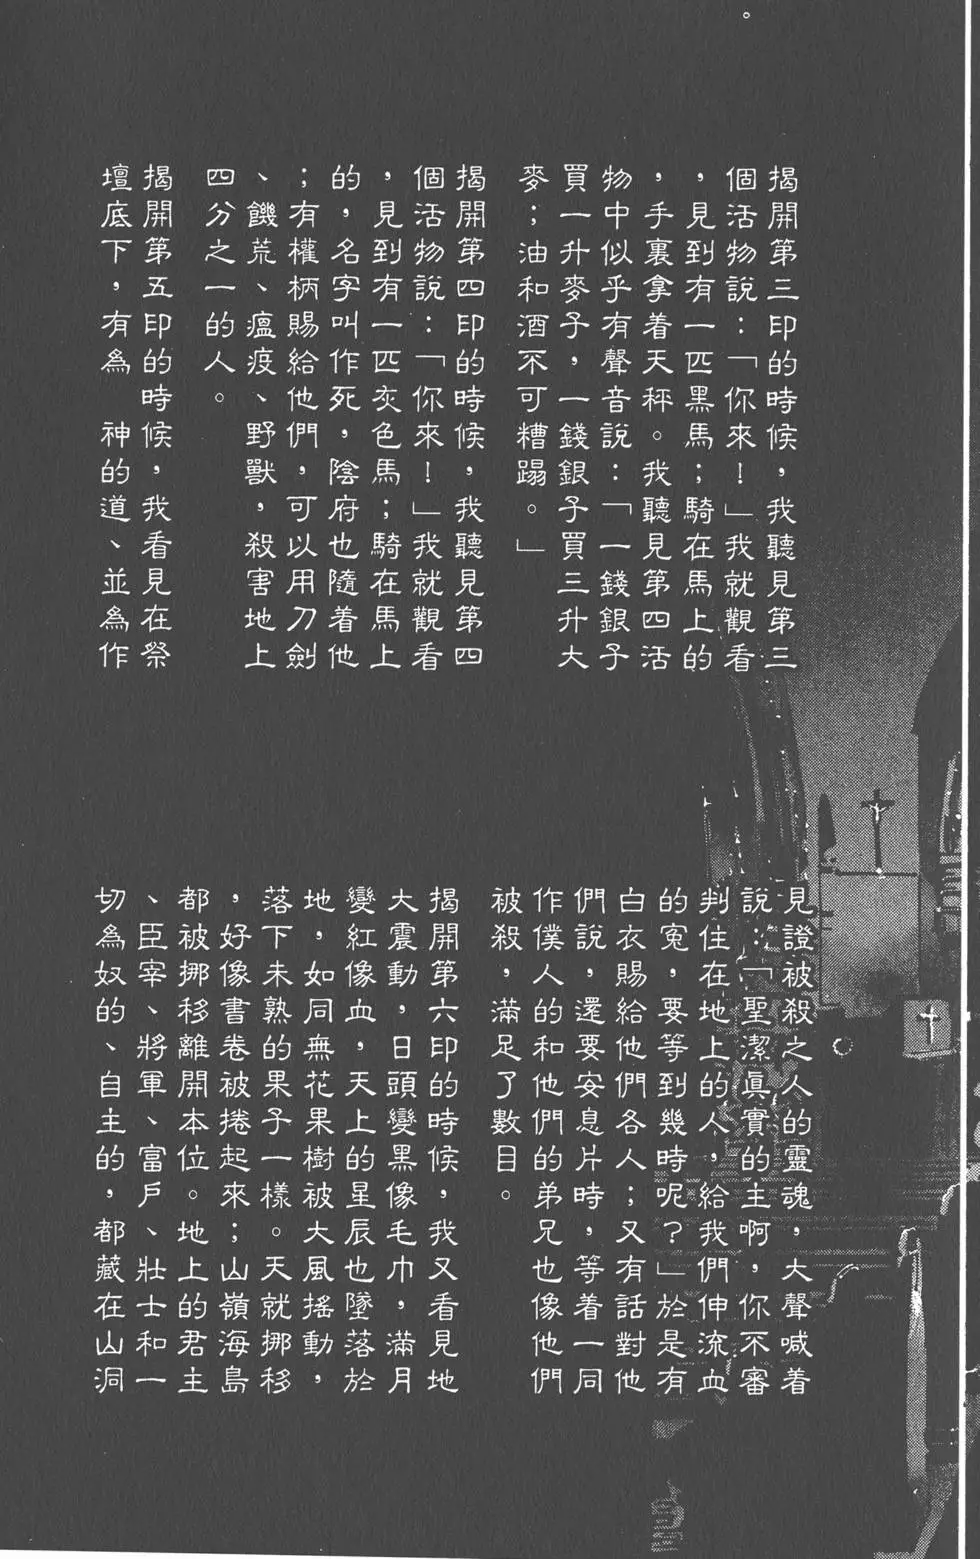 。
揭開第三印的時候，我聽見第三
個活物說：「你來！」我就觀看
，見到有一匹黑馬；騎在馬上的
，手裏拿着天秤。我聽見第四活
物中似乎有聲音說：「一錢銀子
買一升麥子，一錢銀子買三升大
麥；油和酒不可糟蹋。」
揭開第四印的時候，我聽見第四
個活物說：「你來！」我就觀看
，見到有一匹灰色馬；騎在馬上
的，名字叫作死，陰府也隨着他
；有權柄賜給他們，可以用刀劍
、饑荒、瘟疫、野獸，殺害地上
四分之一的人。
揭開第五印的時候，我看見在祭
壇底下，有為　神的道、並為作
見證被殺之人的靈魂，大聲喊着
說：「聖潔真實的主啊，你不審
判住在地上的人，給我們伸流血
的冤，要等到幾時呢？」於是有
白衣賜給他們各人；又有話對他
們說，還要安息片時，等着一同
作僕人的和他們的弟兄也像他們
被殺，滿足了數目。
揭開第六印的時候，我又看見地
大震動，日頭變黑像毛巾，滿月
變紅像血，天上的星辰也墜落於
地，如同無花果樹被大風搖動，
落下未熟的果子一樣。天就挪移
，好像書卷被捲起來；山嶺海島
都被挪移離開本位。地上的君主
、臣宰、將軍、富戶、壯士和一
切為奴的、自主的，都藏在山洞